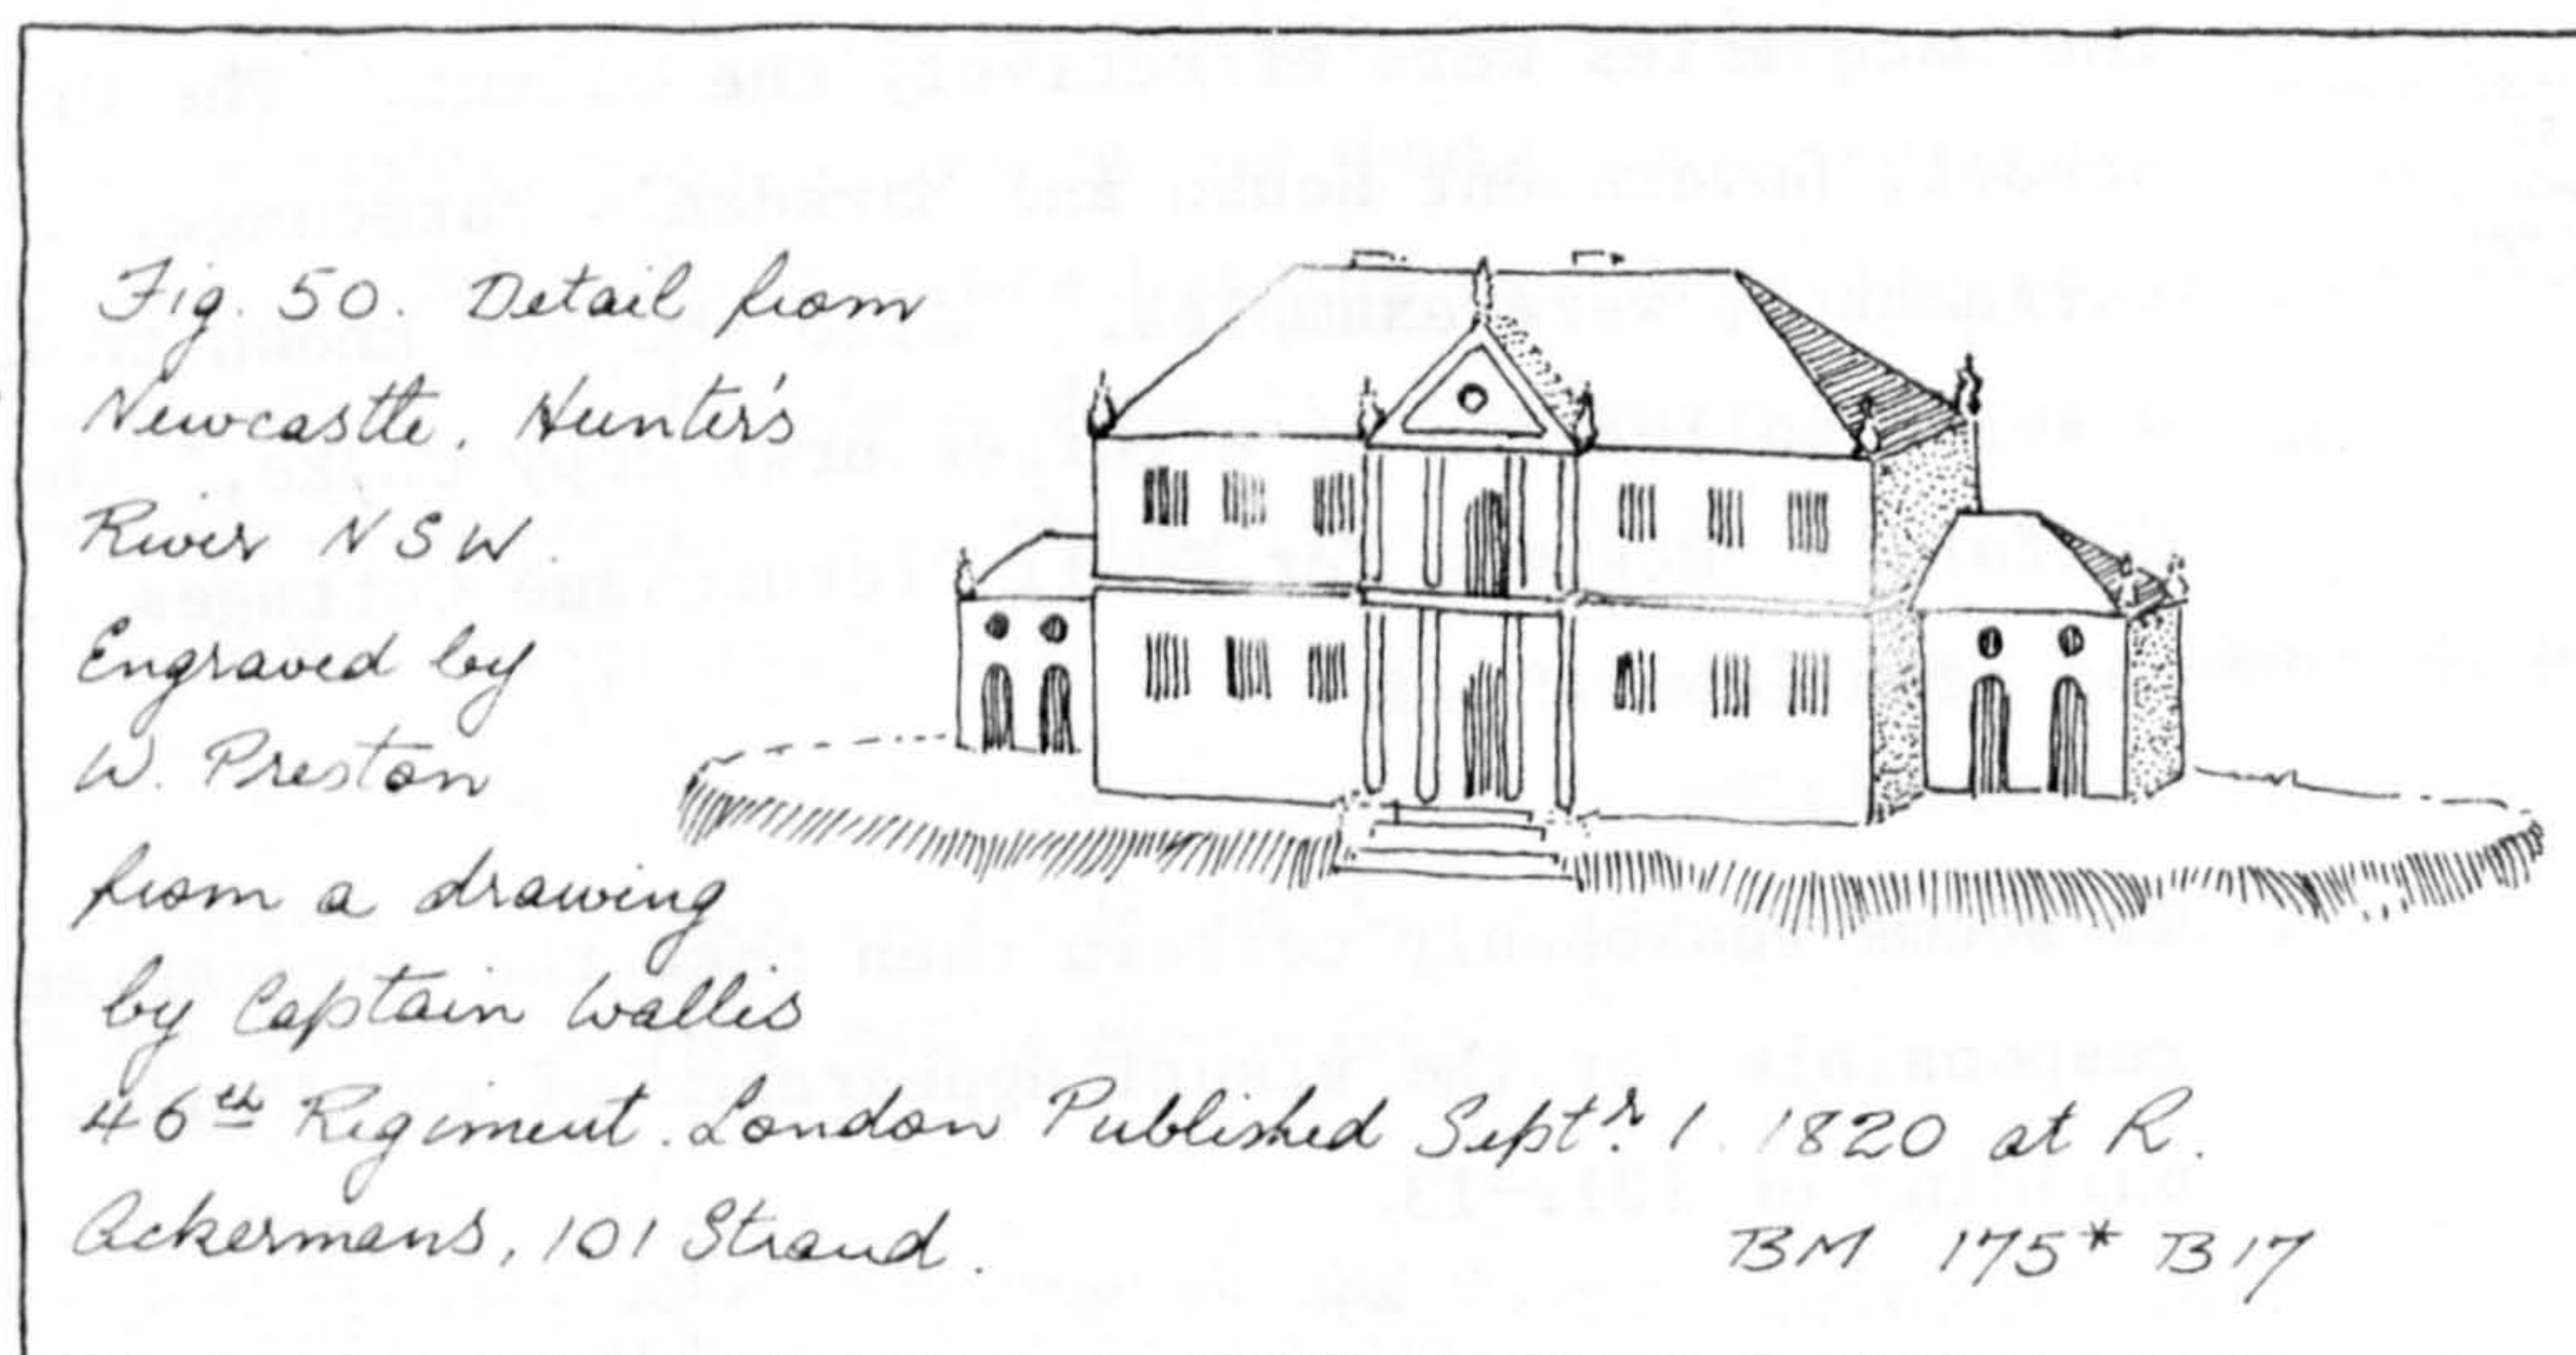 Fig. 50. Detail from
Newcastle. Hunter's
River N S W.
Engraved by
W. Preston
from a drawing
by Captain Wallis
46th Regiment. London Published Septr. 1. 1820 at R.
Ackermans, 101 Strand.
BM 175* B17